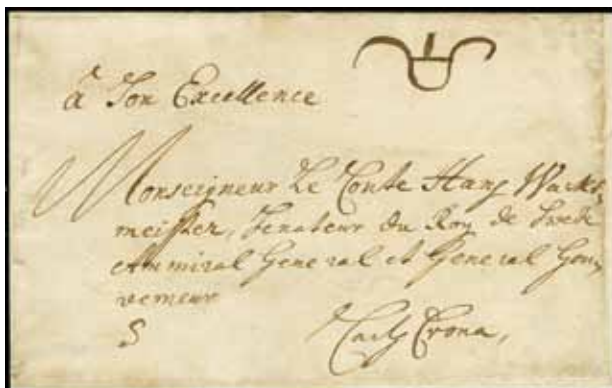 à Son Excellence
Monseigneur Le Conte Hans Wacht
meister, Senateur du Roy de Svede
Ammiral General et General Gou
verneur
S
à
Carls Crona,